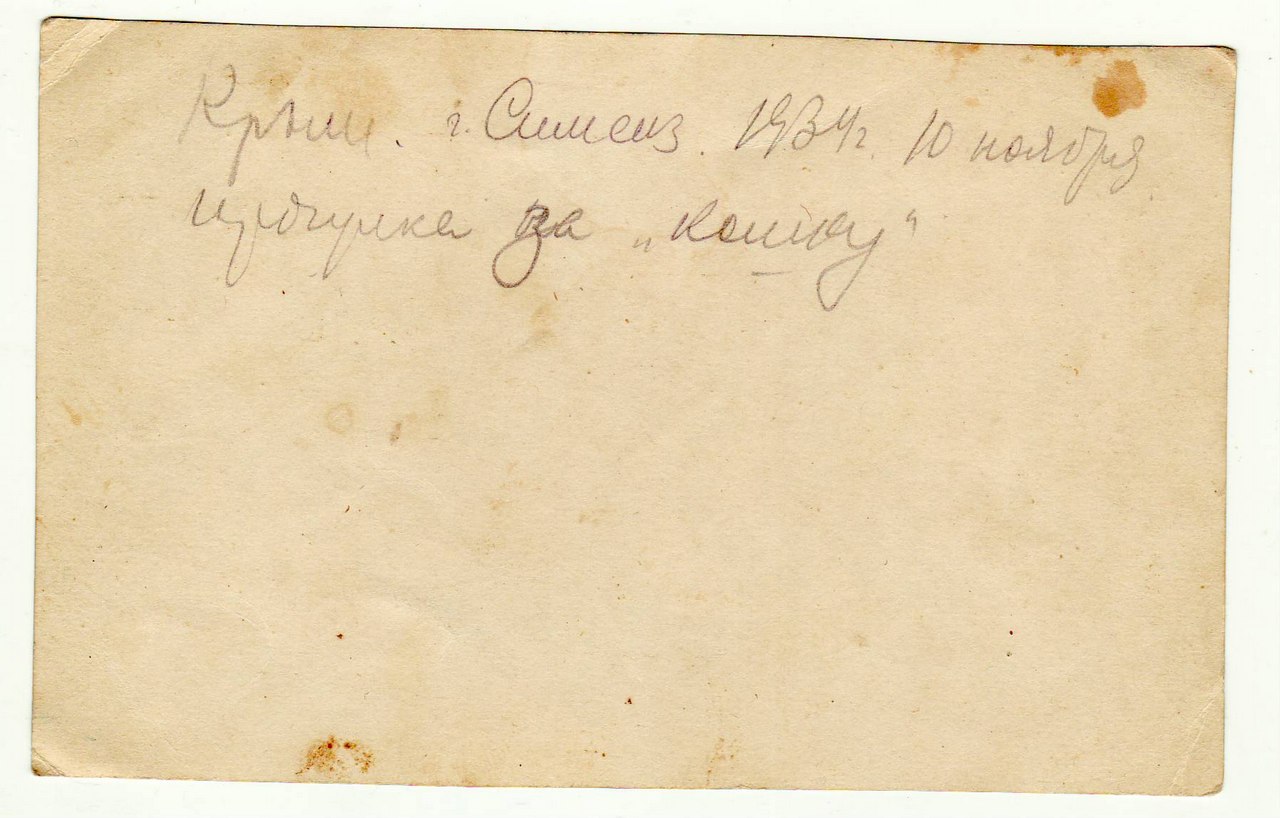 Крым. г. Симеиз. 1934г. 10 ноября
прогулка за „кошку“